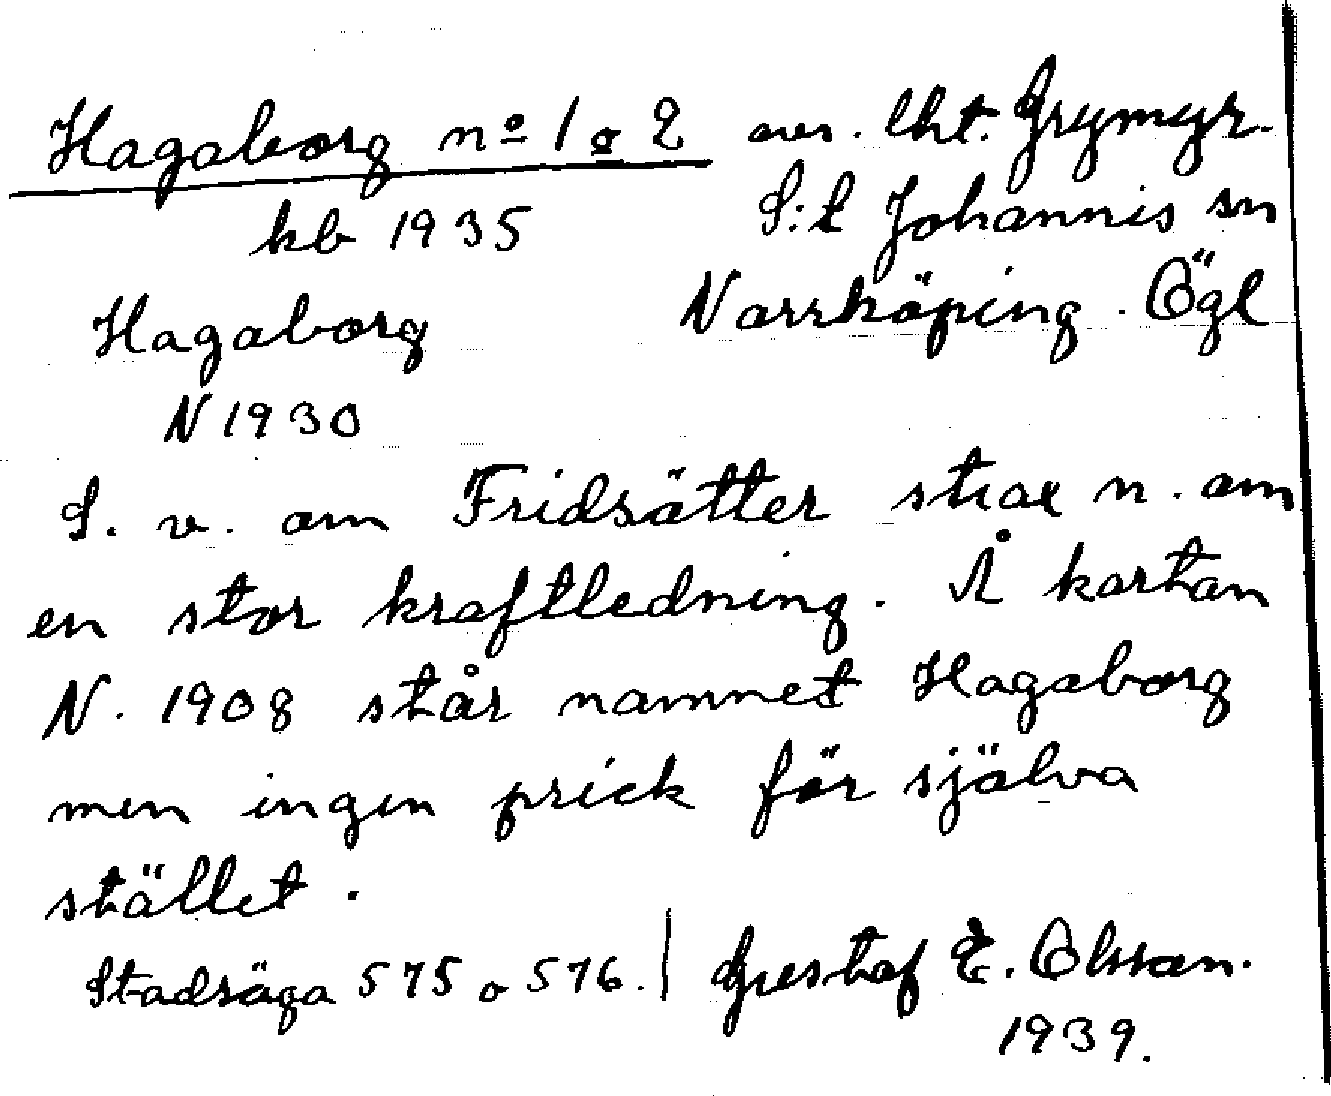 Hagaborg nº 1 o 2 avs. lht. Grymyr.
kb 1935 S:t Johannis sn
Hagaborg Norrköping. Ögl
N 1930
S. v. om Fridsätter strax n. om
en stor kraftledning. Å kartan
N. 1908 står namnet Hagaborg
men ingen prick för själva
stället.
Stadsäga 575 o 576. | Gustaf E. Olsson.
1939.